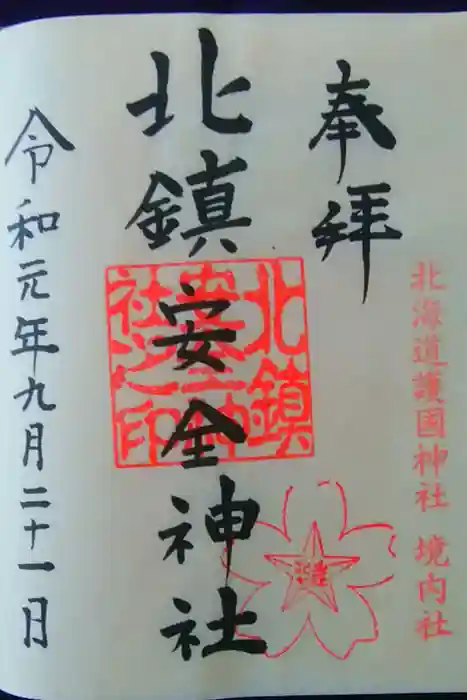 奉拝
北海道護国神社 境内社
北鎮安全神社
北鎮安全神社之印
令和元年九月二十一日